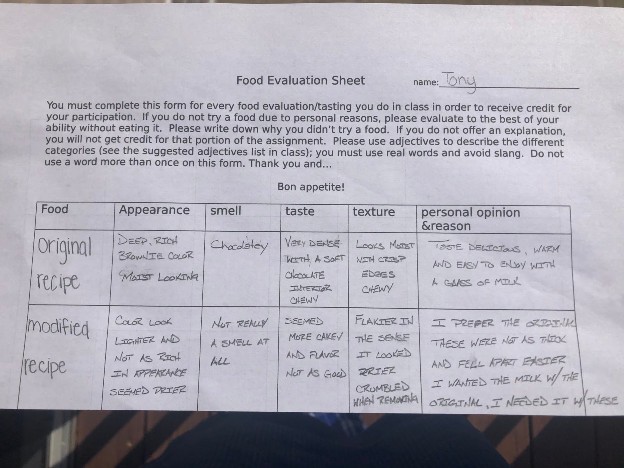 Food Evaluation Sheet name: Tony
You must complete this form for every food evaluation/tasting you do in class in order to receive credit for
your participation. If you do not try a food due to personal reasons, please evaluate to the best of your
ability without eating it. Please write down why you didn't try a food. If you do not offer an explanation,
you will not get credit for that portion of the assignment. Please use adjectives to describe the different
categories (see the suggested adjectives list in class); you must use real words and avoid slang. Do not
use a word more than once on this form. Thank you and...
Bon appetite!
Food Appearance smell taste texture personal opinion
&reason
Original
recipe
DEEP, RICH
BROWNIE COLOR
MOIST LOOKING
Chocolatey
VERY DENSE
WITH A SOFT
CHOCOLATE
INTERIOR
CHEWY
LOOKS MOIST
WITH CRISP
EDGES
CHEWY
TASTE DELICIOUS, WARM
AND EASY TO ENJOY WITH
A GLASS OF MILK
modified
recipe
COLOR LOOK
LIGHTER AND
NOT AS RICH
IN APPEARANCE
SEEMED DRIER
NOT REALLY
A SMELL AT
ALL
SEEMED
MORE CAKEY
AND FLAVOR
NOT AS GOOD
FLAKIER IN
THE SENSE
IT LOOKED
DRIER
CRUMBLED
WHEN REMOVING
I PREFER THE ORIGINAL
THESE WERE NOT AS THICK
AND FELL APART EASIER
I WANTED THE MILK W/ THE
ORIGINAL, I NEEDED IT W/ THESE